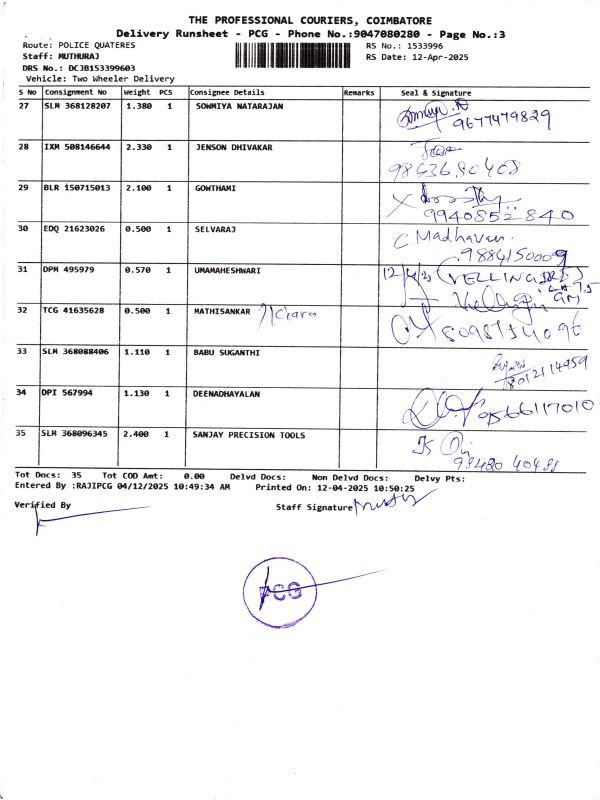 THE PROFESSIONAL COURIERS, COIMBATORE
Delivery Runsheet - PCG - Phone No.:9047080280 - Page No.:3
Route: POLICE QUATERES RS No.: 1533996
Staff: MUTHURAJ RS Date: 12-Apr-2025
DRS No.: DCJB153399603
Vehicle: Two Wheeler Delivery
S No Consignment No Weight PCS Consignee Details Remarks Seal & Signature
27 SLM 368128207 1.380 1 SONMIYA NATARAJAN
9677479829
28 IXM 508146644 2.330 1 JENSON DHIVAKAR
29 BLR 150715013 2.100 1 GOWTHAMI
9940852840
30 EDQ 21623026 0.500 1 SELVARAJ
C Madhavan.
9884150009
31 DPM 495979 0.570 1 UMAMAHESHWARI
32 TCG 41635628 0.500 1 MATHISANKAR
33 SLM 368088406 1.110 1 BABU SUGANTHI
8012114959
34 DPI 567994 1.130 1 DEENADHAYALAN
9566117010
35 SLM 368096345 2.400 1 SANJAY PRECISION TOOLS
98430 40488
Tot Docs: 35 Tot COD Amt: 0.00 Delvd Docs: Non Delvd Docs: Delvy Pts:
Entered By :RAJIPCG 04/12/2025 10:49:34 AM Printed On: 12-04-2025 10:50:25
Verified By Staff Signature
PCG